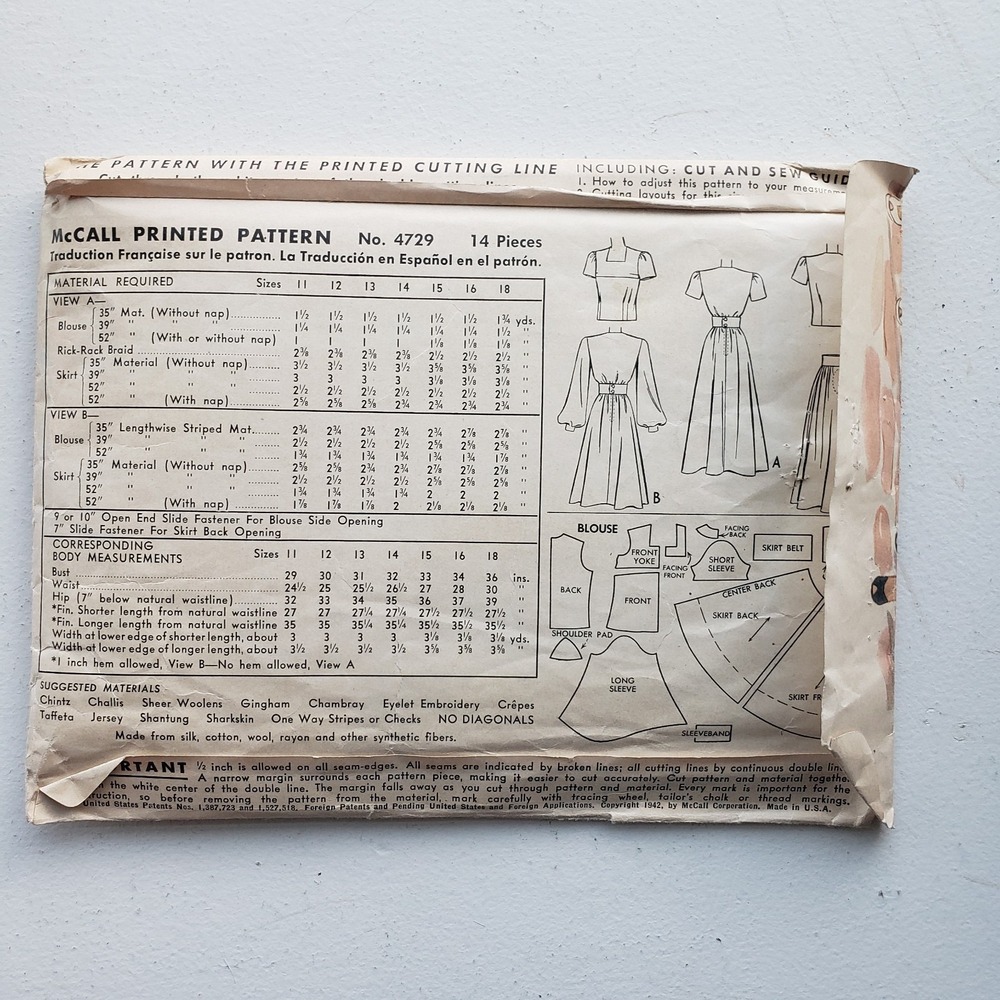 PATTERN WITH THE PRINTED CUTTING LINE
INCLUDING: CUT AND SEW GUID
1. How to adjust this pattern to your measurem
Cutting layouts for this
McCALL PRINTED PATTERN No. 4729 14 Pieces
Traduction Française sur le patron. La Traducción en Español en el patrón.
MATERIAL REQUIRED Sizes 11 12 13 14 15 16 18
VIEW A—
Blouse
35" Mat. (Without nap) 1½ 1½ 1½ 1½ 1½ 1½ 1¾ yds.
39" " " " 1¼ 1¼ 1¼ 1¼ 1¼ 1¼ 1½ "
52" " (With or without nap) 1 1 1 1 1⅛ 1⅛ 1⅛ "
Rick-Rack Braid 2⅜ 2⅜ 2⅜ 2⅜ 2½ 2½ 2½ "
Skirt
35" Material (Without nap) 3½ 3½ 3½ 3½ 3⅝ 3⅝ 3⅝ "
39" " " " 3 3 3 3 3⅛ 3⅛ 3⅛ "
52" " " " 2½ 2½ 2½ 2½ 2½ 2½ 2½ "
52" " (With nap) 2⅝ 2⅝ 2⅝ 2¾ 2¾ 2¾ 2¾ "
VIEW B—
Blouse
35" Lengthwise Striped Mat. 2¾ 2¾ 2¾ 2¾ 2¾ 2⅞ 2⅞ "
39" " " " 2½ 2½ 2½ 2½ 2⅝ 2⅝ 2⅝ "
52" " " " 1¾ 1¾ 1¾ 1¾ 1¾ 1¾ 1⅞ "
Skirt
35" Material (Without nap) 2⅝ 2⅝ 2¾ 2¾ 2⅞ 2⅞ 2⅞ "
39" " " " 2½ 2½ 2½ 2½ 2⅝ 2⅝ 2⅝ "
52" " " " 1¾ 1¾ 1¾ 1¾ 2 2 2 "
52" " (With nap) 1⅞ 1⅞ 1⅞ 2 2⅛ 2⅛ 2⅛ "
9 or 10" Open End Slide Fastener For Blouse Side Opening
7" Slide Fastener For Skirt Back Opening
CORRESPONDING
BODY MEASUREMENTS Sizes 11 12 13 14 15 16 18
Bust 29 30 31 32 33 34 36 ins.
Waist 24½ 25 25½ 26½ 27 28 30 "
Hip (7" below natural waistline) 32 33 34 35 36 37 39 "
*Fin. Shorter length from natural waistline 27 27 27¼ 27¼ 27½ 27½ 27½ "
*Fin. Longer length from natural waistline 35 35 35¼ 35¼ 35½ 35½ 35½ "
Width at lower edge of shorter length, about 3 3 3 3 3⅛ 3⅛ 3⅛ yds.
Width at lower edge of longer length, about 3½ 3½ 3½ 3½ 3⅝ 3⅝ 3⅝ "
*1 inch hem allowed, View B—No hem allowed, View A
SUGGESTED MATERIALS
Chintz Challis Sheer Woolens Gingham Chambray Eyelet Embroidery Crêpes
Taffeta Jersey Shantung Sharkskin One Way Stripes or Checks NO DIAGONALS
Made from silk, cotton, wool, rayon and other synthetic fibers.
B
A
BLOUSE
BACK
FRONT
YOKE
FACING
FRONT
FACING
BACK
SHORT
SLEEVE
SKIRT BELT
FRONT
SHOULDER PAD
LONG
SLEEVE
SLEEVEBAND
CENTER BACK
SKIRT BACK
SKIRT FR
RTANT ½ inch is allowed on all seam-edges. All seams are indicated by broken lines; all cutting lines by continuous double lin
A narrow margin surrounds each pattern piece, making it easier to cut accurately. Cut pattern and material togethe
the white center of the double line. The margin falls away as you cut through pattern and material. Every mark is important for the
ruction, so before removing the pattern from the material, mark carefully with tracing wheel, tailor's chalk or thread markings.
United States Patents Nos. 1,387,723 and 1,527,518. Foreign Patents and Pending United States and Foreign Applications. Copyright 1942, by McCall Corporation. Made in U.S.A.